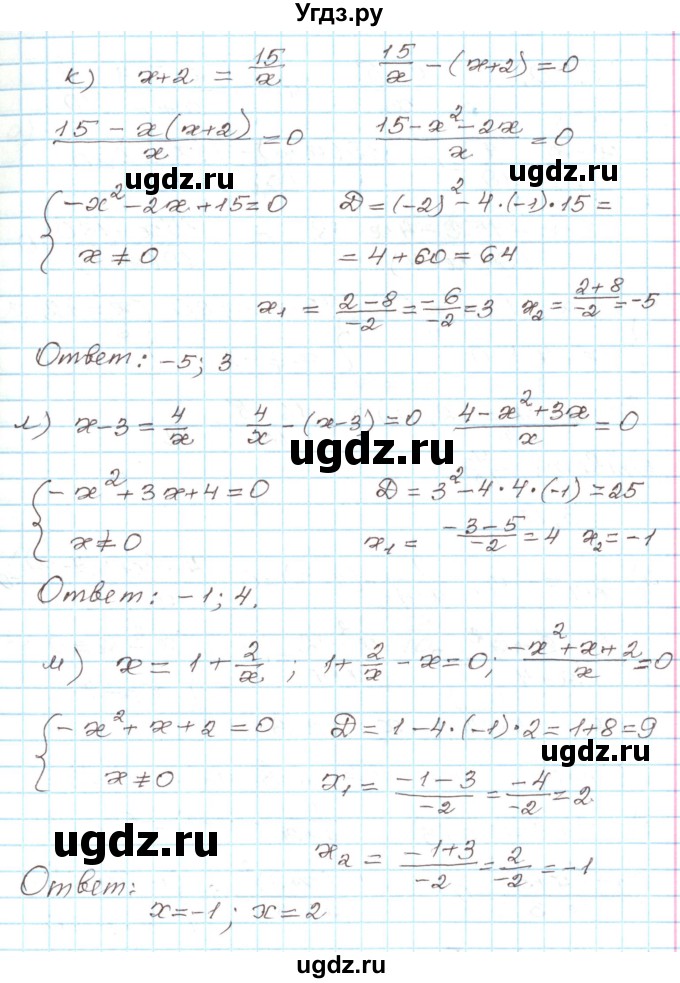 Угдз.ру
к) x+2 = 15/x    15/x - (x+2) = 0
(15 - x(x+2))/x = 0    (15 - x² - 2x)/x = 0
ugdz.ru ugdz.ru
{ -x² - 2x + 15 = 0    D = (-2)² - 4·(-1)·15 =
x ≠ 0    = 4 + 60 = 64
x₁ = (2-8)/-2 = -6/-2 = 3    x₂ = (2+8)/-2 = -5
Ответ: -5; 3
л) x-3 = 4/x    4/x - (x-3) = 0    (4 - x² + 3x)/x = 0
ugdz.ru
{ -x² + 3x + 4 = 0    D = 3² - 4·4·(-1) = 25
x ≠ 0    x₁ = (-3-5)/-2 = 4    x₂ = -1
Ответ: -1; 4.
м) x = 1 + 2/x ; 1 + 2/x - x = 0; (-x² + x + 2)/x = 0
{ -x² + x + 2 = 0    D = 1 - 4·(-1)·2 = 1+8 = 9
ugdz.ru
x ≠ 0    x₁ = (-1-3)/-2 = -4/-2 = 2
ugdz.ru
x₂ = (-1+3)/-2 = 2/-2 = -1
Ответ:
x = -1; x = 2
ugdz.ru
ugdz.ru